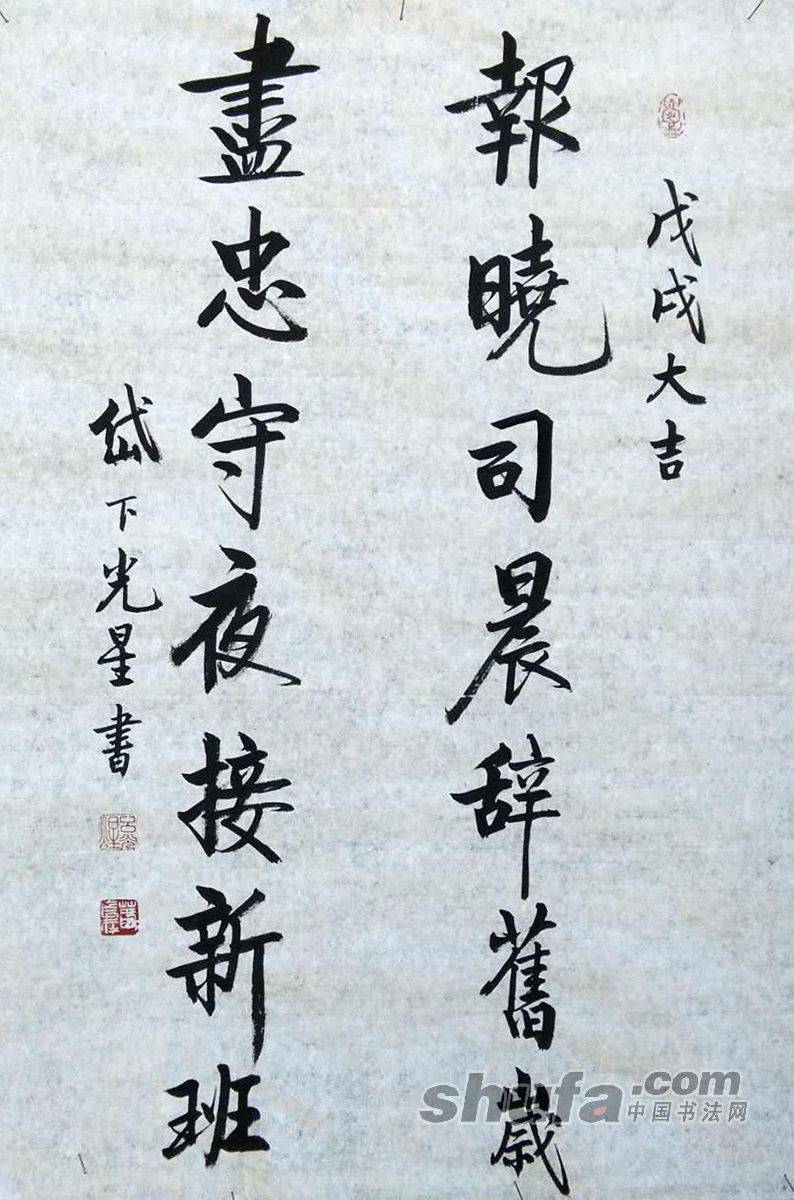 戊戌大吉
報曉司晨辞舊歲
盡忠守夜接新班
岱下光星書
shufa.com
中国书法网